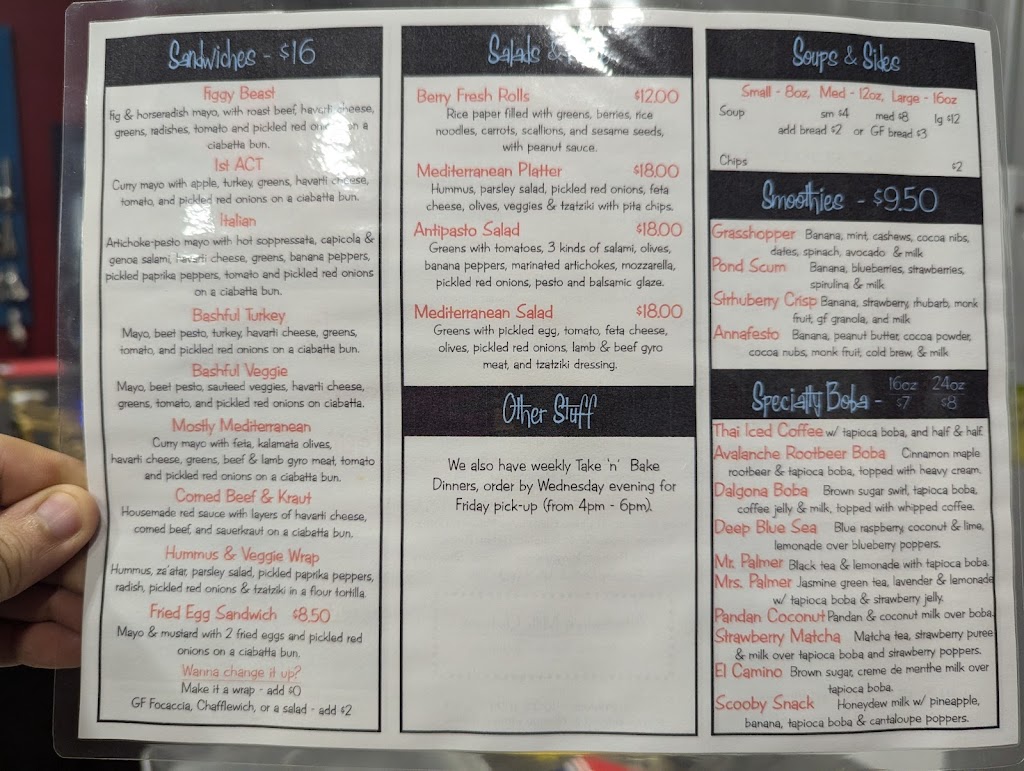 Sandwiches - $16
Figgy Beast
Fig & horseradish mayo, with roast beef, havarti cheese,
greens, radishes, tomato and pickled red onions on a
ciabatta bun.
1st ACT
Curry mayo with apple, turkey, greens, havarti cheese,
tomato, and pickled red onions on a ciabatta bun.
Italian
Artichoke-pesto mayo with hot soppressata, capicola &
genoa salami, havarti cheese, greens, banana peppers,
pickled paprika peppers, tomato and pickled red onions
on a ciabatta bun.
Bashful Turkey
Mayo, beet pesto, turkey, havarti cheese, greens,
tomato, and pickled red onions on a ciabatta bun.
Bashful Veggie
Mayo, beet pesto, sauteed veggies, havarti cheese,
greens, tomato, and pickled red onions on ciabatta.
Mostly Mediterranean
Curry mayo with feta, kalamata olives,
havarti cheese, greens, beef & lamb gyro meat, tomato
and pickled red onions on a ciabatta bun.
Corned Beef & Kraut
Housemade red sauce with layers of havarti cheese,
corned beef, and sauerkraut on a ciabatta bun.
Hummus & Veggie Wrap
Hummus, za'atar, parsley salad, pickled paprika peppers,
radish, pickled red onions & tzatziki in a flour tortilla.
Fried Egg Sandwich $8.50
Mayo & mustard with 2 fried eggs and pickled red
onions on a ciabatta bun.
Wanna change it up?
Make it a wrap - add $0
GF Focaccia, Chafflewich, or a salad - add $2
Salads &
Berry Fresh Rolls $12.00
Rice paper filled with greens, berries, rice
noodles, carrots, scallions, and sesame seeds,
with peanut sauce.
Mediterranean Platter $18.00
Hummus, parsley salad, pickled red onions, feta
cheese, olives, veggies & tzatziki with pita chips.
Antipasto Salad $18.00
Greens with tomatoes, 3 kinds of salami, olives,
banana peppers, marinated artichokes, mozzarella,
pickled red onions, pesto and balsamic glaze.
Mediterranean Salad $18.00
Greens with pickled egg, tomato, feta cheese,
olives, pickled red onions, lamb & beef gyro
meat, and tzatziki dressing.
Other Stuff
We also have weekly Take 'n' Bake
Dinners, order by Wednesday evening for
Friday pick-up (from 4pm - 6pm).
Soups & Sides
Small - 8oz, Med - 12oz, Large - 16oz
Soup sm $4 med $8 lg $12
add bread $2 or GF bread $3
Chips $2
Smoothies - $9.50
Grasshopper Banana, mint, cashews, cocoa nibs,
dates, spinach, avocado & milk
Pond Scum Banana, blueberries, strawberries,
spirulina & milk
Strhuberry Crisp Banana, strawberry, rhubarb, monk
fruit, gf granola, and milk
Annafesto Banana, peanut butter, cocoa powder,
cocoa nubs, monk fruit, cold brew, & milk
Specialty Boba - 16oz $7 24oz $8
Thai Iced Coffee w/ tapioca boba, and half & half.
Avalanche Rootbeer Boba Cinnamon maple
rootbeer & tapioca boba, topped with heavy cream.
Dalgona Boba Brown sugar swirl, tapioca boba,
coffee jelly & milk, topped with whipped coffee.
Deep Blue Sea Blue raspberry, coconut & lime,
lemonade over blueberry poppers.
Mr. Palmer Black tea & lemonade with tapioca boba.
Mrs. Palmer Jasmine green tea, lavender & lemonade
w/ tapioca boba & strawberry jelly.
Pandan Coconut Pandan & coconut milk over boba.
Strawberry Matcha Matcha tea, strawberry puree
& milk over tapioca boba and strawberry poppers.
El Camino Brown sugar, creme de menthe milk over
tapioca boba.
Scooby Snack Honeydew milk w/ pineapple,
banana, tapioca boba & cantaloupe poppers.